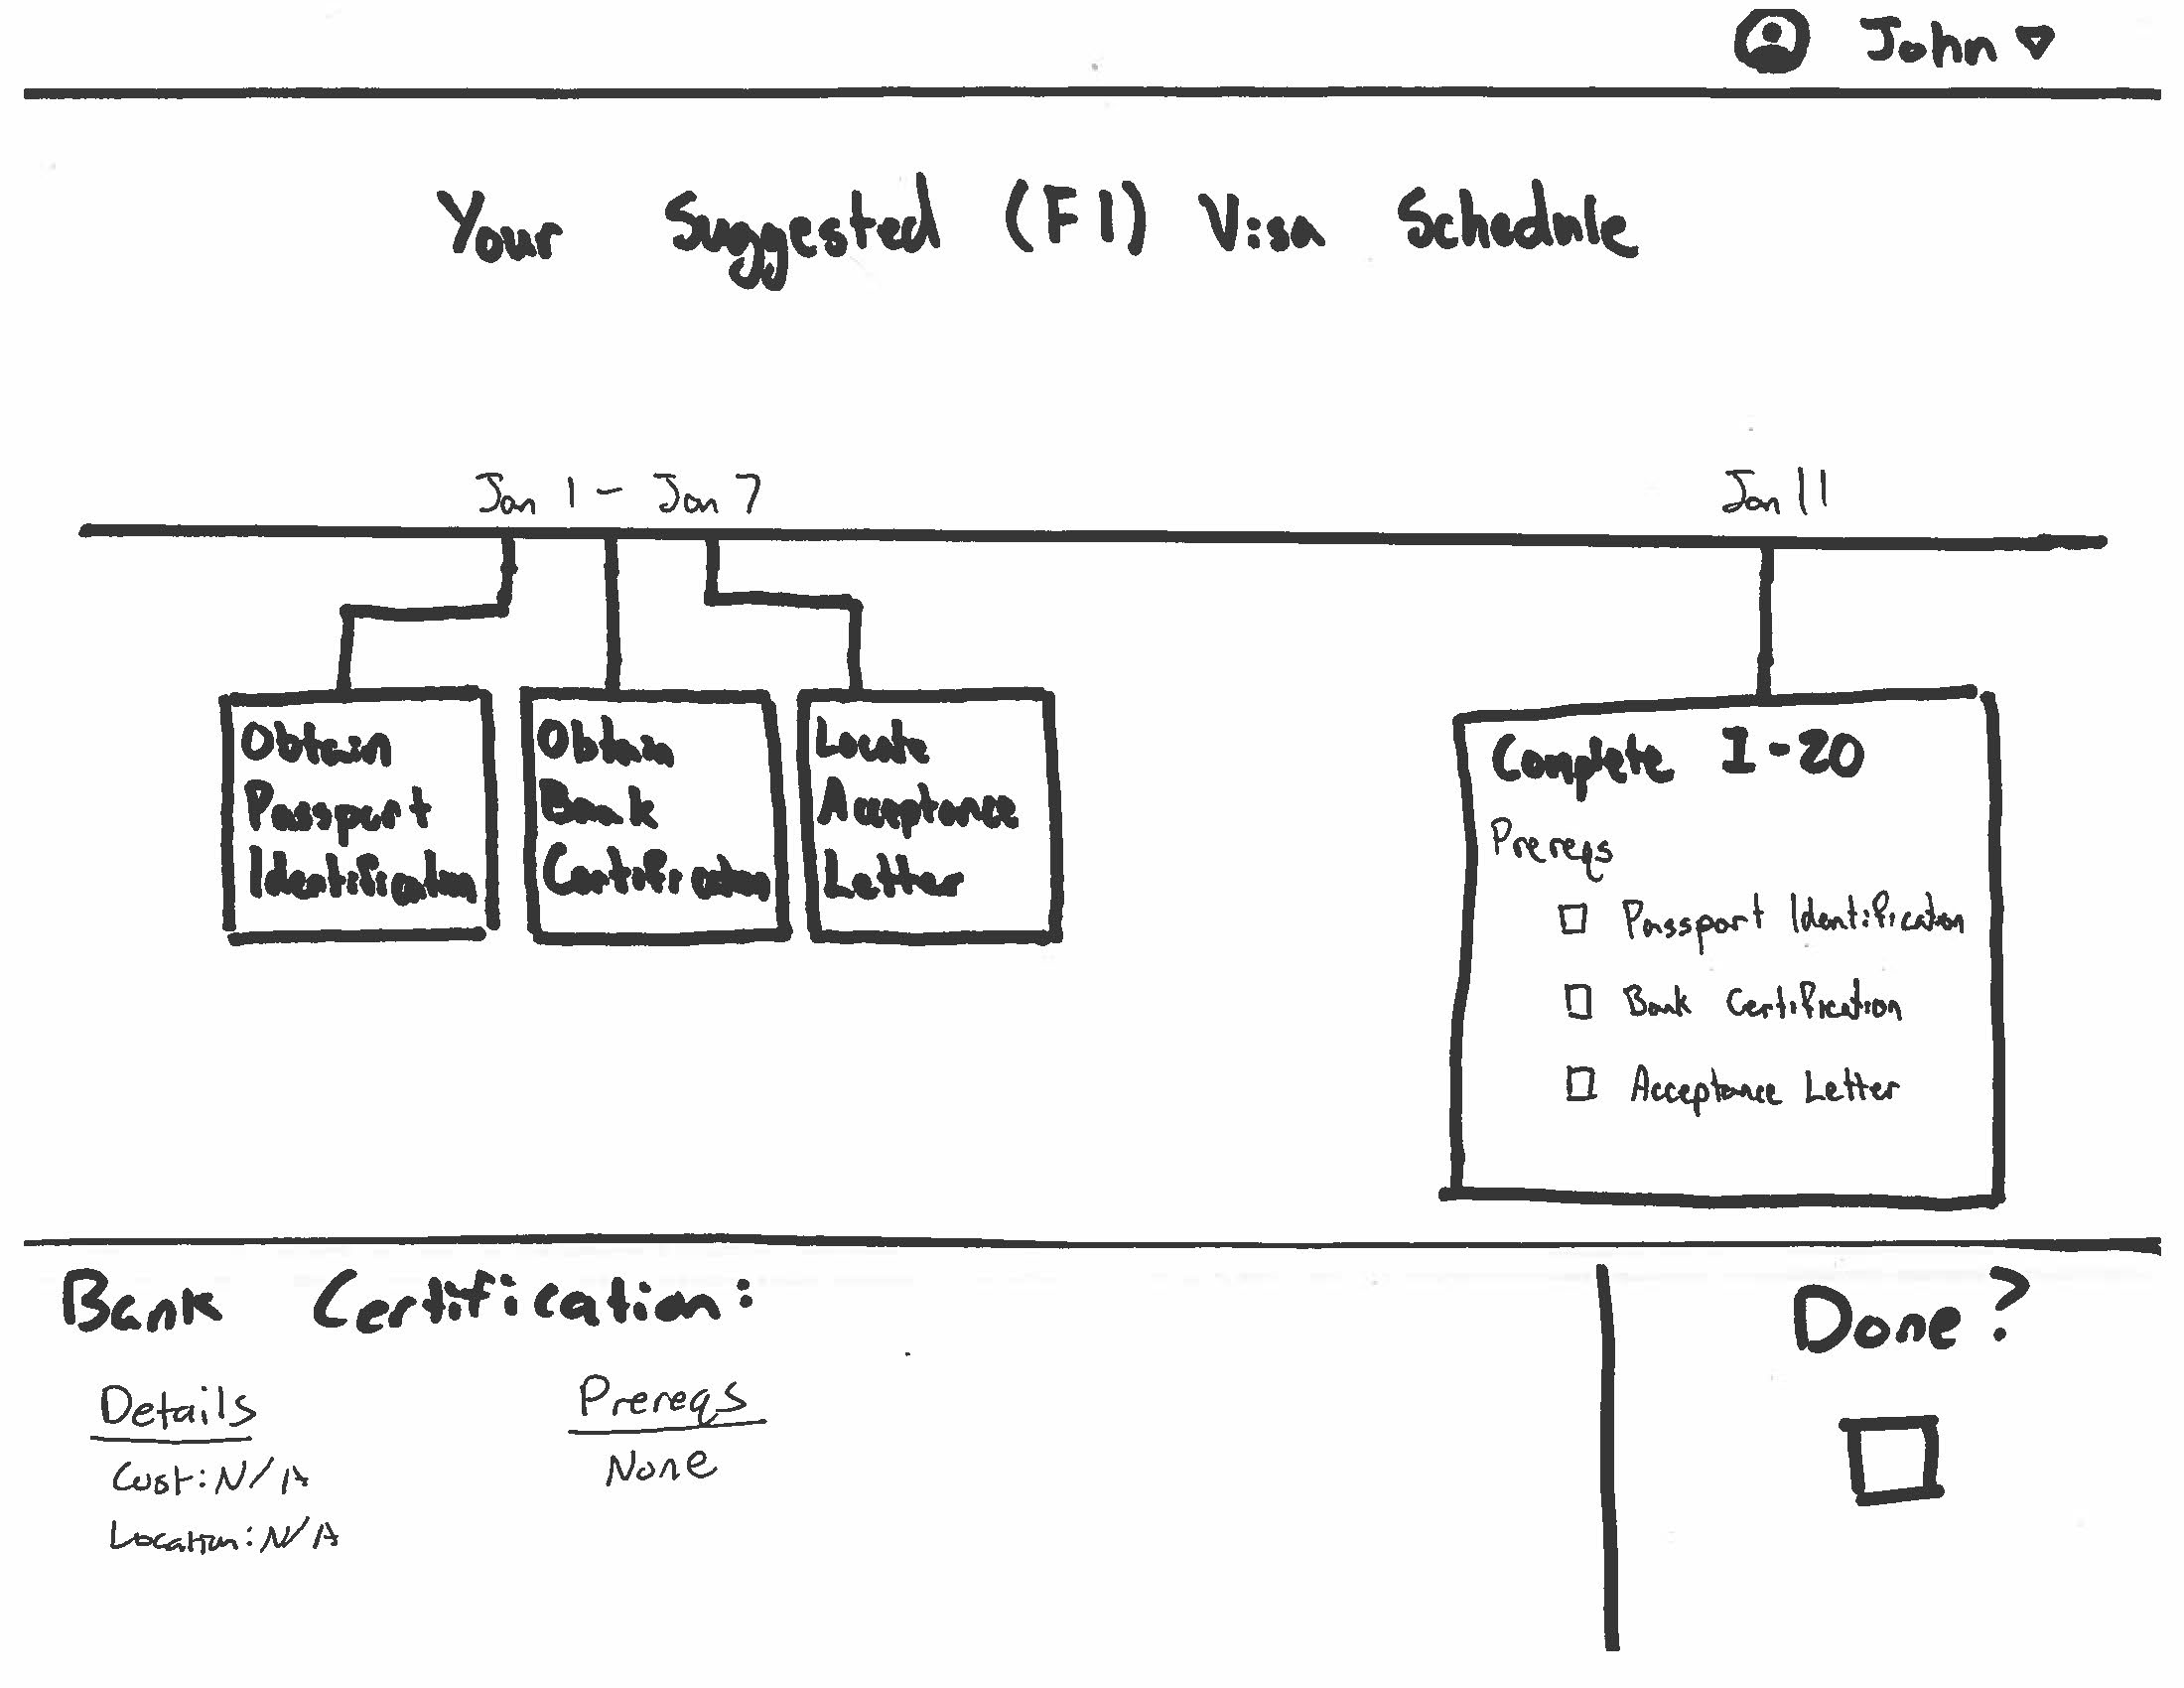 John
Your Suggested (F1) Visa Schedule
Jan 1 - Jan 7
Jan 11
Obtain
Passport
Identification
Obtain
Bank
Certification
Locate
Acceptance
Letter
Complete I-20
Prereqs
Passport Identification
Bank Certification
Acceptance Letter
Bank Certification:
Details
Cost: N/A
Location: N/A
Prereqs
None
Done?